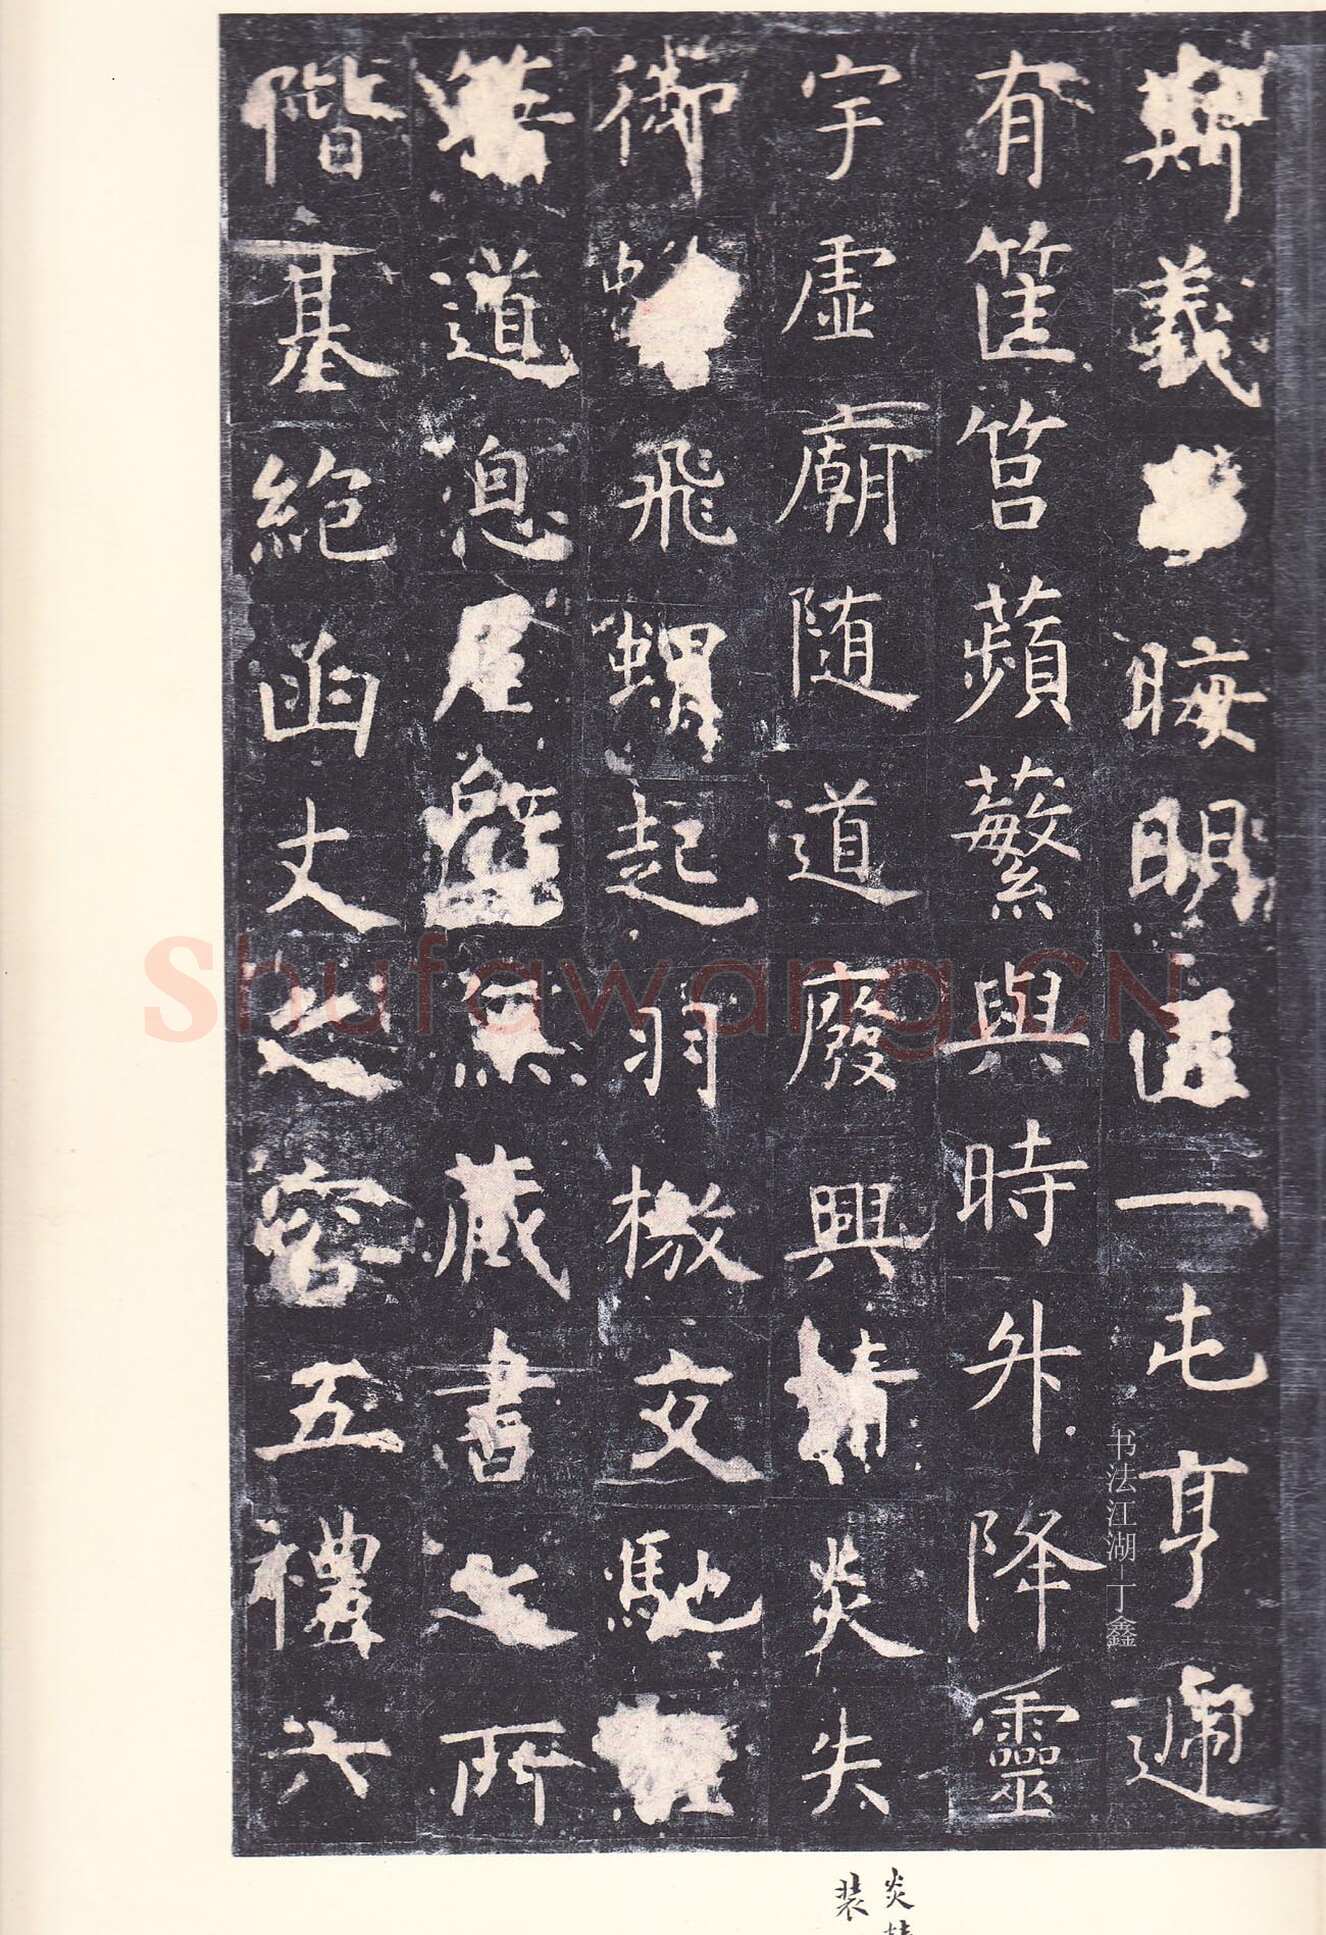 斯義晦明匪一屯亨遞
有筐筥蘋蘩與時升降靈
宇虛廟隨道廢興精炎失
御飛蝟起羽檄交馳
籍道息屋壁無藏書之所
階基絕函丈之容五禮六
炎
裝
书法江湖-丁鑫
Shufawang.CN